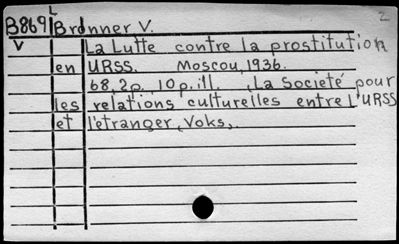 L 2
B869 Bronner V.
V La Lutte contre la prostitution
en URSS. Moscou, 1936.
68,2p. 10p.ill. , La Societé pour
les relations culturelles entre l'URSS
et l'etranger, Voks,.